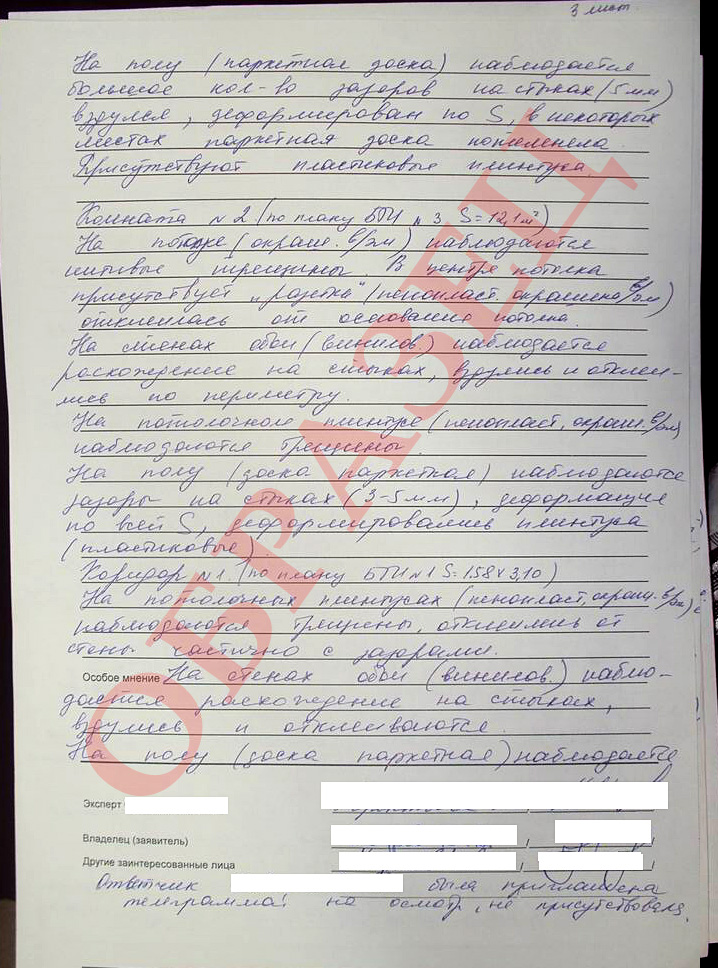 3 лист
На полу (паркетная доска) наблюдается
большое кол-во зазоров на стыках (5мм)
вздулся, деформирован по S, в некоторых
местах паркетная доска потемнела.
Присутствуют пластиковые плинтуса
Комната №2 (по плану БТИ №3 S=12,1м²)
На потолке (окраш. в/эм) наблюдаются
нитевые трещины. В центре потолка
присутствует "розетка" (пенопласт. окрашена в/эм)
отклеилась от основания потолка.
На стенах обои (винилов) наблюдается
расхождение на стыках, вздулись и отклеи-
лись по периметру.
На потолочном плинтусе (пенопласт, окраш. в/эм)
наблюдаются трещины.
На полу (доска паркетная) наблюдаются
зазоры на стыках (3-5мм), деформация
по всей S, деформировались плинтуса
(пластиковые)
Коридор №1 (по плану БТИ №1 S=
На потолочных плинтусах (пенопласт, окраш. в/эм)
наблюдаются трещены, отклеились от
стены частично с зазорами.
Особое мнение На стенах обои (винилов.) наблю-
дается расхождение на стыках,
вздулись и отклеиваются.
На полу (доска паркетная) наблюдается
Эксперт
Владелец (заявитель)
Другие заинтересованные лица
Ответчик была приглашена
телеграммой на осмотр, не присутствовала.
ОБРАЗЕЦ